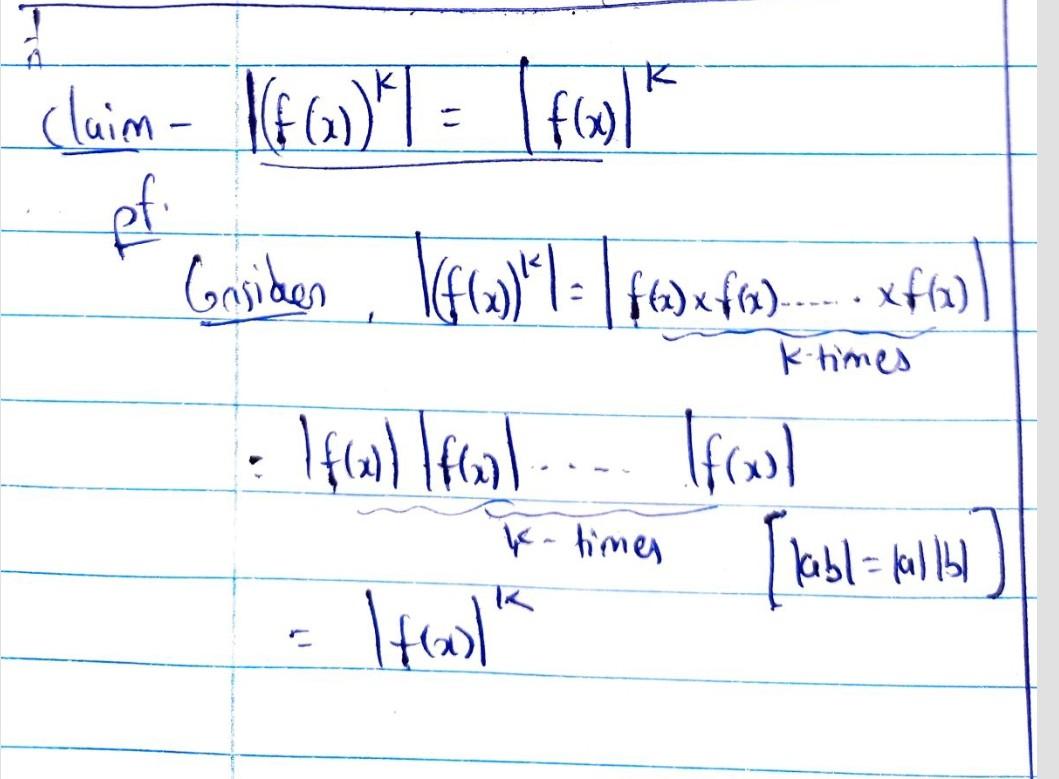 Claim - |(f(x))^k| = |f(x)|^k
pf.
Consider, |(f(x))^k| = |f(x) x f(x)...... . x f(x)|
k-times
= |f(x)| |f(x)| ..... |f(x)|
k - times [|ab| = |a| |b|]
= |f(x)|^k